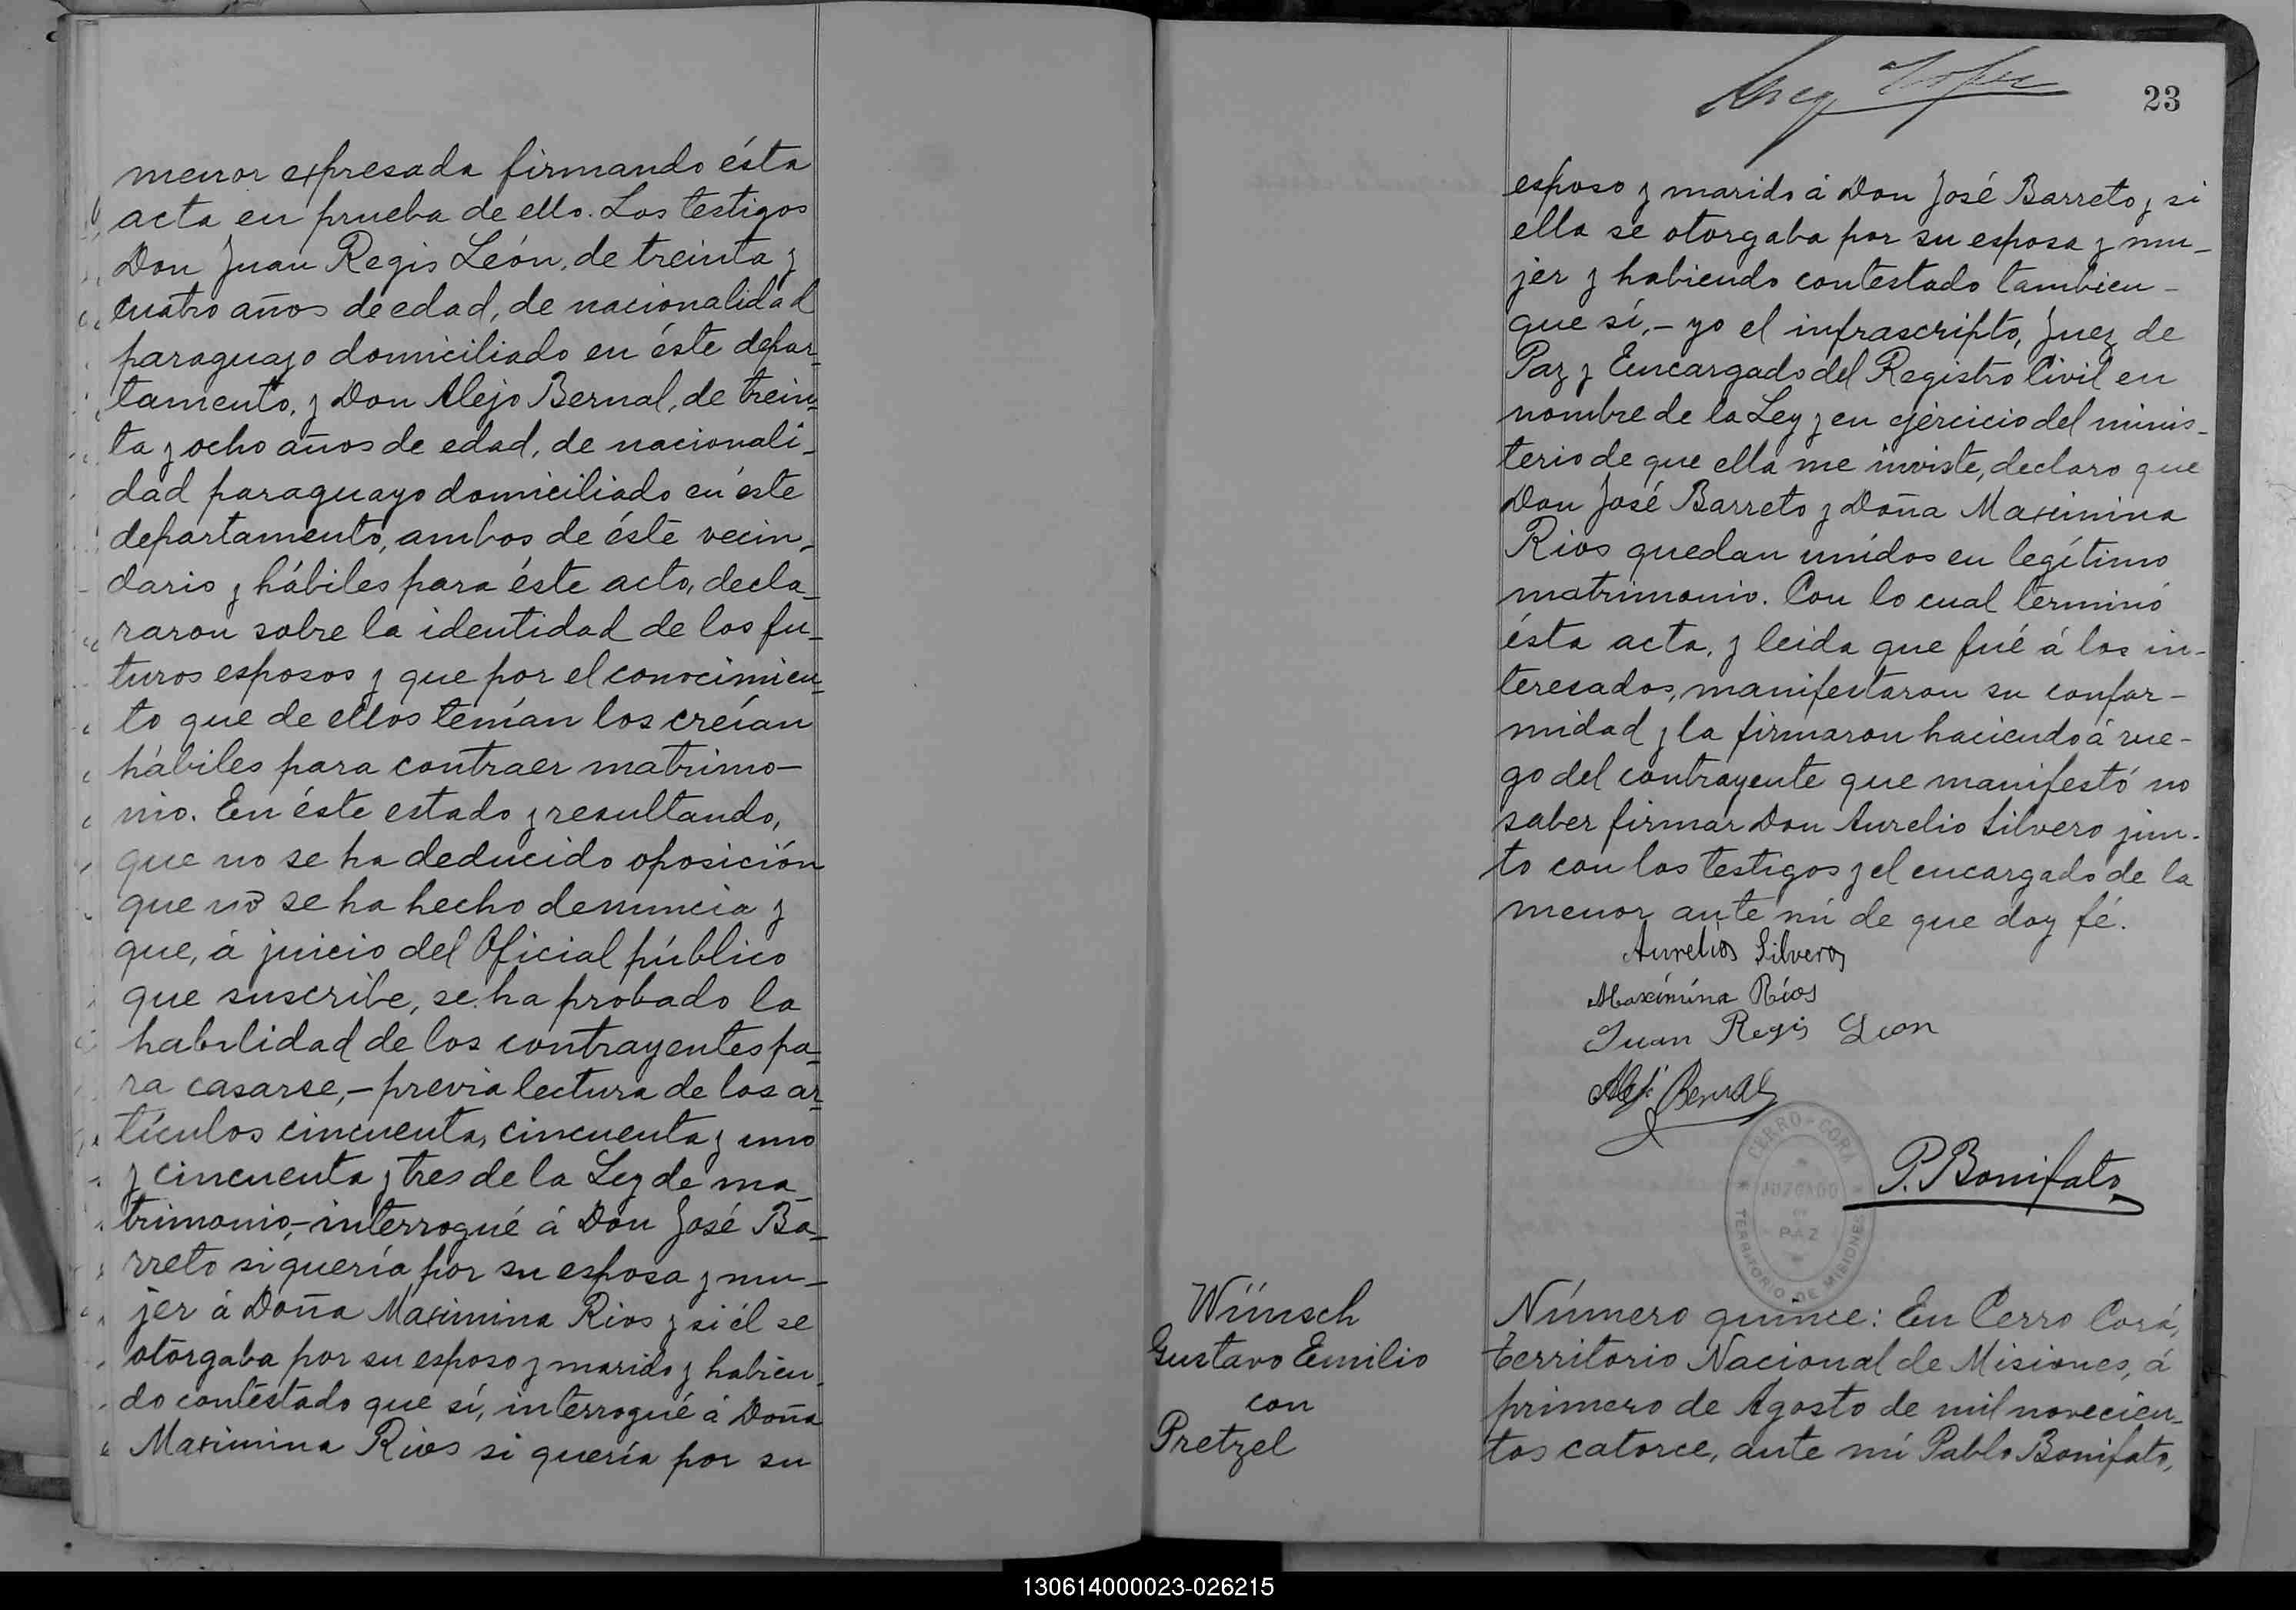 menor expresada firmando ésta
acta en prueba de ello. Los testigos
Don Juan Regis León, de treinta y
cuatro años de edad, de nacionalidad
paraguayo domiciliado en éste depar_
tamento, y Don Alejo Bernal, de trein_
ta y ocho años de edad, de nacionali_
dad paraguayo domiciliado en éste
departamento, ambos de éste vecin_
dario y hábiles para éste acto, decla_
raron sobre la identidad de los fu_
turos esposos y que por el conocimien_
to que de ellos tenían los creían
hábiles para contraer matrimo-
nio. En éste estado y resultando,
que no se ha deducido oposición
que no se ha hecho denuncia y
que, á juicio del Oficial público
que suscribe, se ha probado la
habilidad de los contrayentes pa_
ra casarse,- previa lectura de los ar_
tículos cincuenta, cincuenta y uno
y cincuenta y tres de la Ley de ma_
trimonio,- interrogué á Don José Ba_
rreto si quería por su esposa y mu_
jer á Doña Maximina Rios y si él se
otorgaba por su esposo y marido y habien_
do contestado que sí, interrogué á Doña
Maximina Rios si quería por su
23
esposo y marido á Don José Barreto y si
ella se otorgaba por su esposa y mu_
jer y habiendo contestado tambien -
que sí,- yo el infrascripto, Juez de
Paz y Encargado del Registro Civil en
nombre de la Ley y en ejercicio del minis_
terio de que ella me inviste, declaro que
Don José Barreto y Doña Maximina
Rios quedan unidos en legítimo
matrimonio. Con lo cual terminó
ésta acta, y leida que fué á los in-
teresados, manifestaron su confor-
midad y la firmaron haciendo á rue-
go del contrayente que manifestó no
saber firmar Don Aurelio Silvero jun-
to con los testigos y el encargado de la
menor ante mí de que doy fé.
Aurelio Silvero
Maximina Ríos
Juan Regis Leon
Alejo Bernal
CERRO-CORÁ
JUZGADO
DE
PAZ
TERRITORIO DE MISIONES
P. Bonifato
Wünsch
Gustavo Emilio
con
Pretzel
Número quince: En Cerro Corá,
territorio Nacional de Misiones, á
primero de Agosto de mil novecien_
tos catorce, ante mí Pablo Bonifato,
130614000023-026215